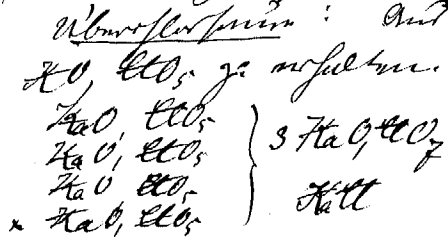 Überchlorsäure : Aus
HO, ClO5 zu erhalten.
KaO, ClO5
KaO, ClO5 } 3 KaO, ClO7
KaO ClO5 KaCl
x KaO, ClO5